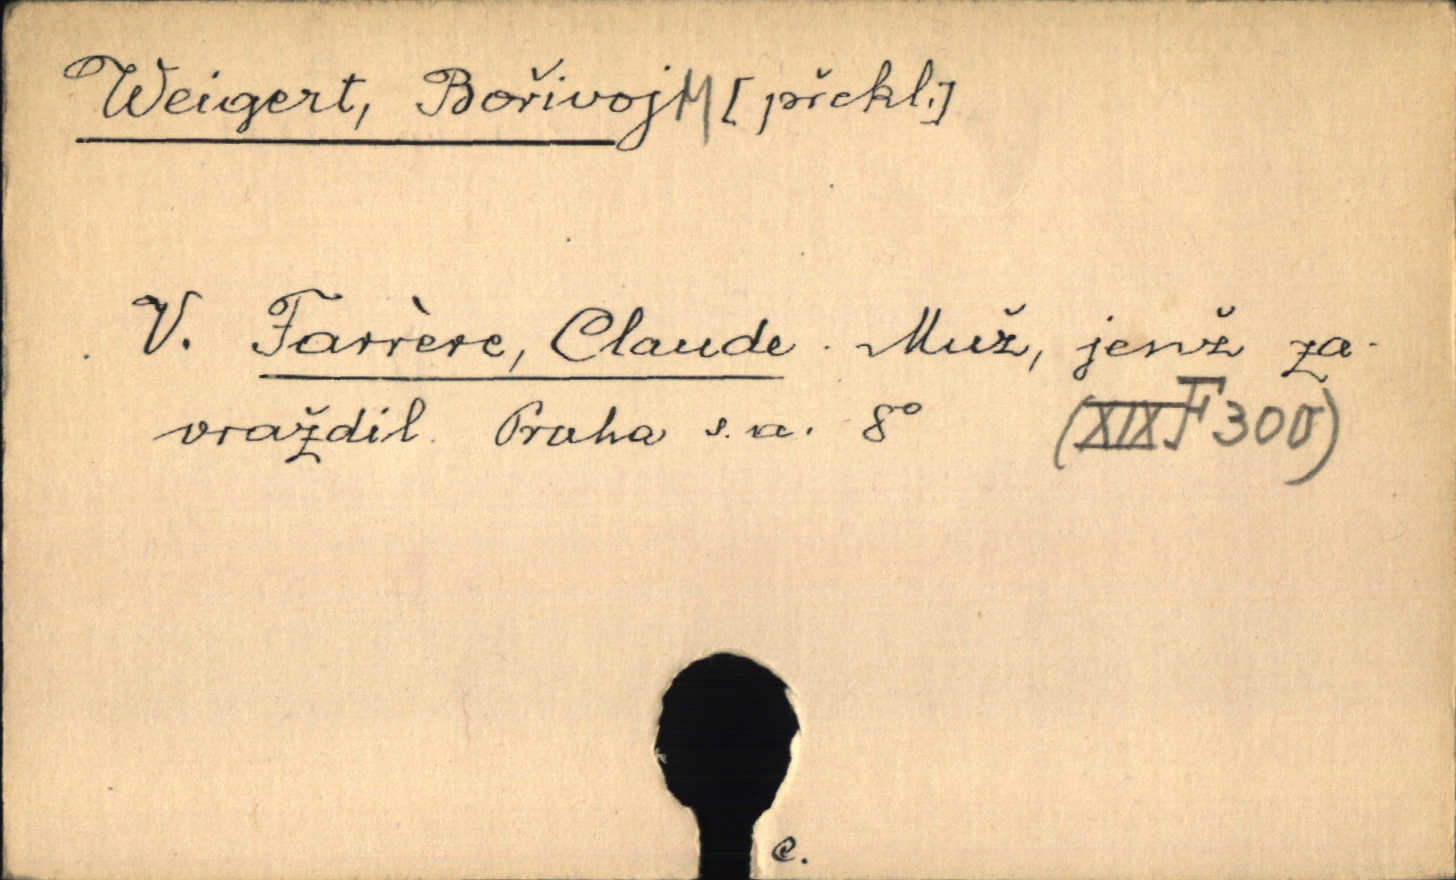 Weigert, Bořivoj M [překl.]
V. Farrère, Claude. Muž, jenž za-
vraždil. Praha s. a. 8° (XIX F 300)
e.